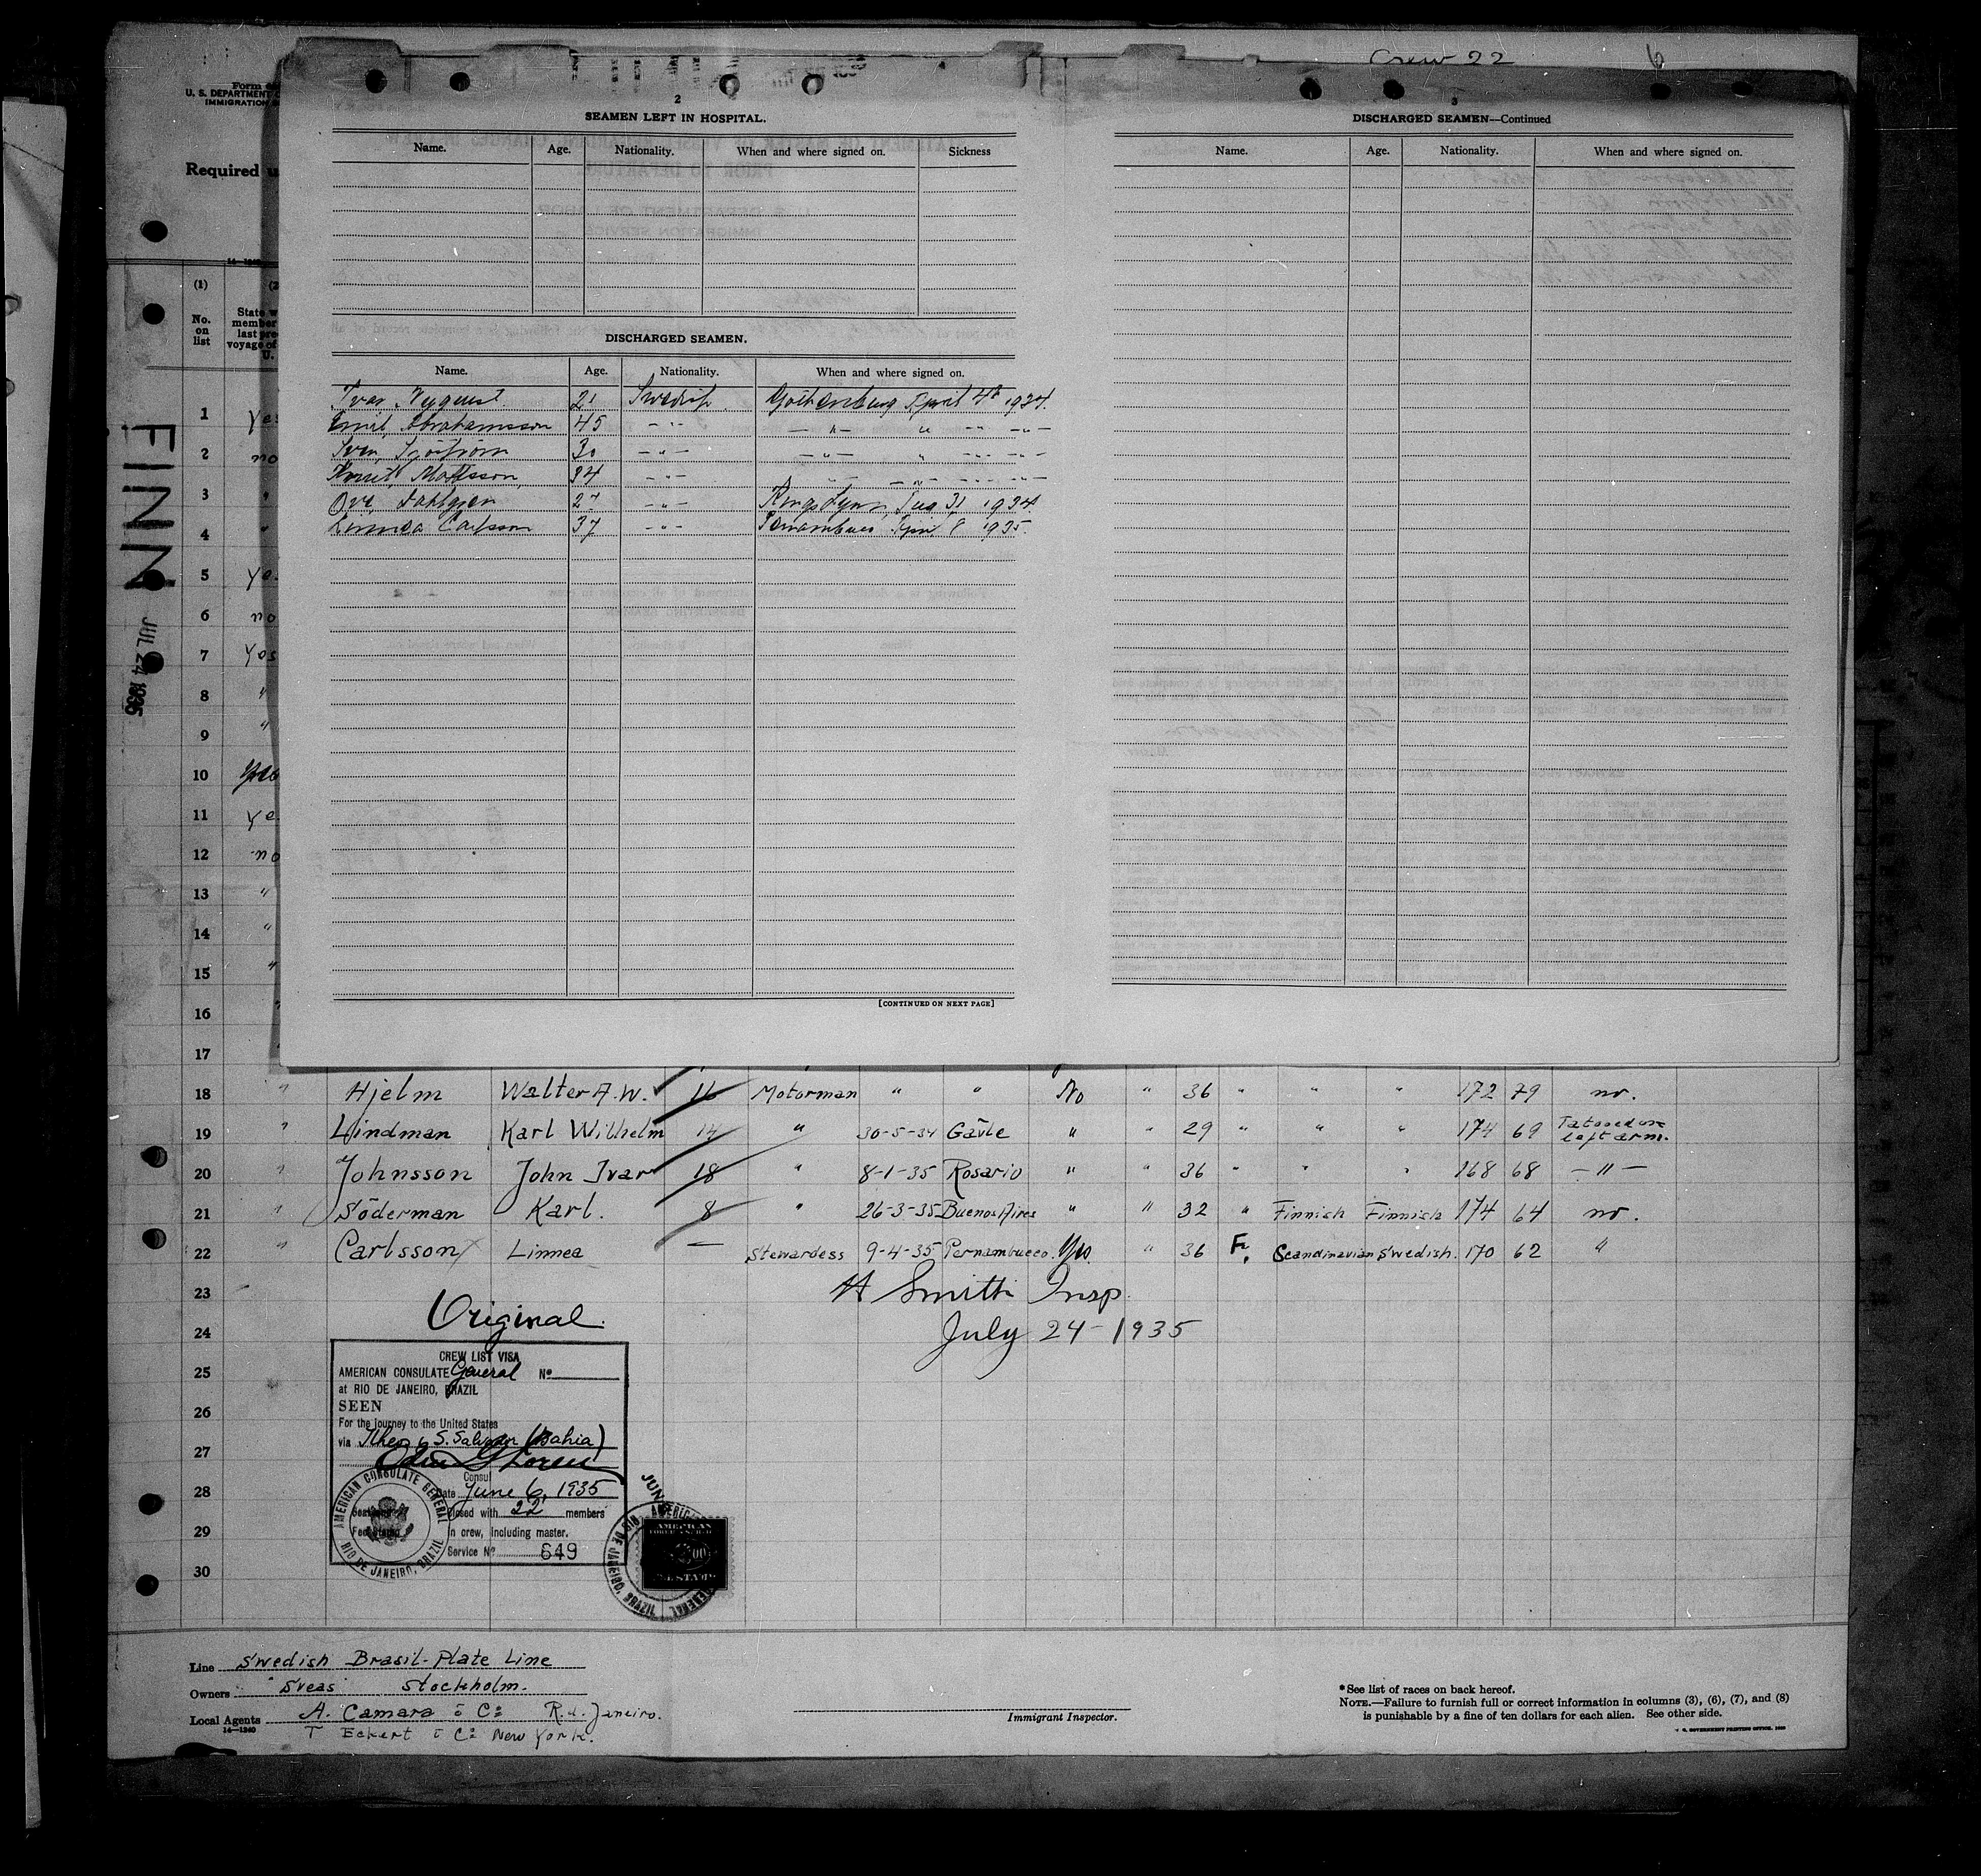 Crew 22 6
Form
U. S. DEPARTMENT
IMMIGRATION
Required
2
SEAMEN LEFT IN HOSPITAL.
Name. Age. Nationality. When and where signed on. Sickness
DISCHARGED SEAMEN.
Name. Age. Nationality. When and where signed on.
Ivar Nyquist 21 Swedish Gothenburg April 4th 1934.
Emil Abrahamsson 45 -"- -"- " -"- -"-
Sven 30 -"- -"- " -"- -"-
Knut Mattsson 34 -"- -"- -"- -"- -"-
Ove Dahlgren -"- Kings Lynn 31 1934
Linnea Carlsson 37 -"- Pernambuco April 8 1935.
[CONTINUED ON NEXT PAGE]
3
DISCHARGED SEAMEN—Continued
Name. Age. Nationality. When and where signed on.
FINN
JUL 24 1935
(1)
No.
on
list
State w
member
last pre
voyage of
U.
1 Yes
2 no
3 "
4 "
5 Yes
6 no
7 Yes
8 "
9 "
10 Yes
11 Ye
12 no
13 "
14 "
15 "
16 "
17
18 " Hjelm Walter A.W. 16 Motorman " " No " 36 " " " 172 79 no.
19 " Lindman Karl Wilhelm 14 " 30-5-34 Gävle " " 29 " " " 174 69 Tatooed on left arm.
20 " Johnsson John Ivar 18 " 8-1-35 Rosario " " 36 " " " 168 68 -"-
21 " Söderman Karl. 8 " 26-3-35 Buenos Aires " " 32 " Finnish Finnish 174 64 no.
22 " Carlsson Linnea — Stewardess 9-4-35 Pernambuco. Yes " 36 F. Scandinavian Swedish. 170 62 "
23
24
25
26
27
28
29
30
H Smith Insp.
July 24-1935
Original
CREW LIST VISA
AMERICAN CONSULATE General No
at RIO DE JANEIRO, BRAZIL
SEEN
For the journey to the United States
via Ilheos S. Salvador (Bahia)
Consul
Date June 6, 1935
Closed with 22 members
in crew, including master.
Service No 649
AMERICAN CONSULATE GENERAL
RIO DE JANEIRO, BRAZIL
JUN
Line Swedish Brasil-Plate Line
Owners "Sveas" Stockholm.
Local Agents A. Camara & Co R. d. Janeiro.
14—1240
T Eckert & Co New York.
Immigrant Inspector.
*See list of races on back hereof.
NOTE.—Failure to furnish full or correct information in columns (3), (6), (7), and (8)
is punishable by a fine of ten dollars for each alien. See other side.